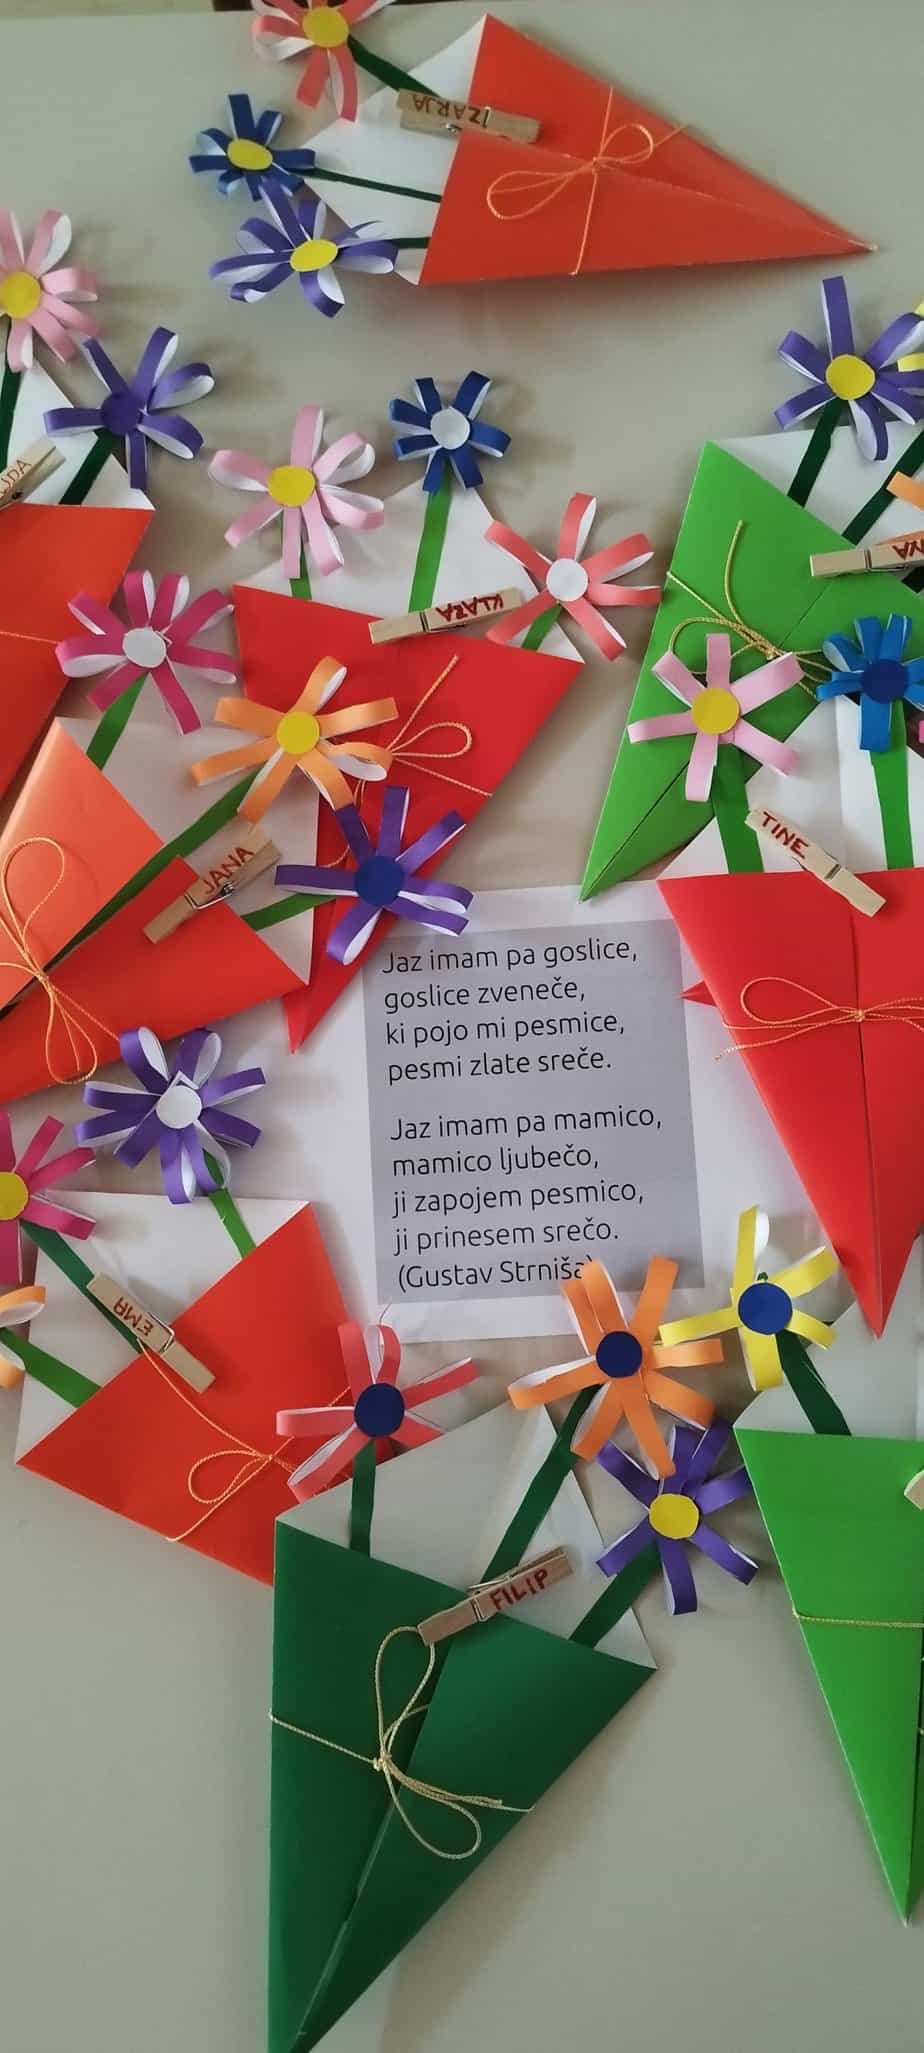 IZARJA
KLARA
TINE
JANA
Jaz imam pa goslice,
goslice zveneče,
ki pojo mi pesmice,
pesmi zlate sreče.
Jaz imam pa mamico,
mamico ljubečo,
ji zapojem pesmico,
ji prinesem srečo.
(Gustav Strniša)
EMA
FILIP